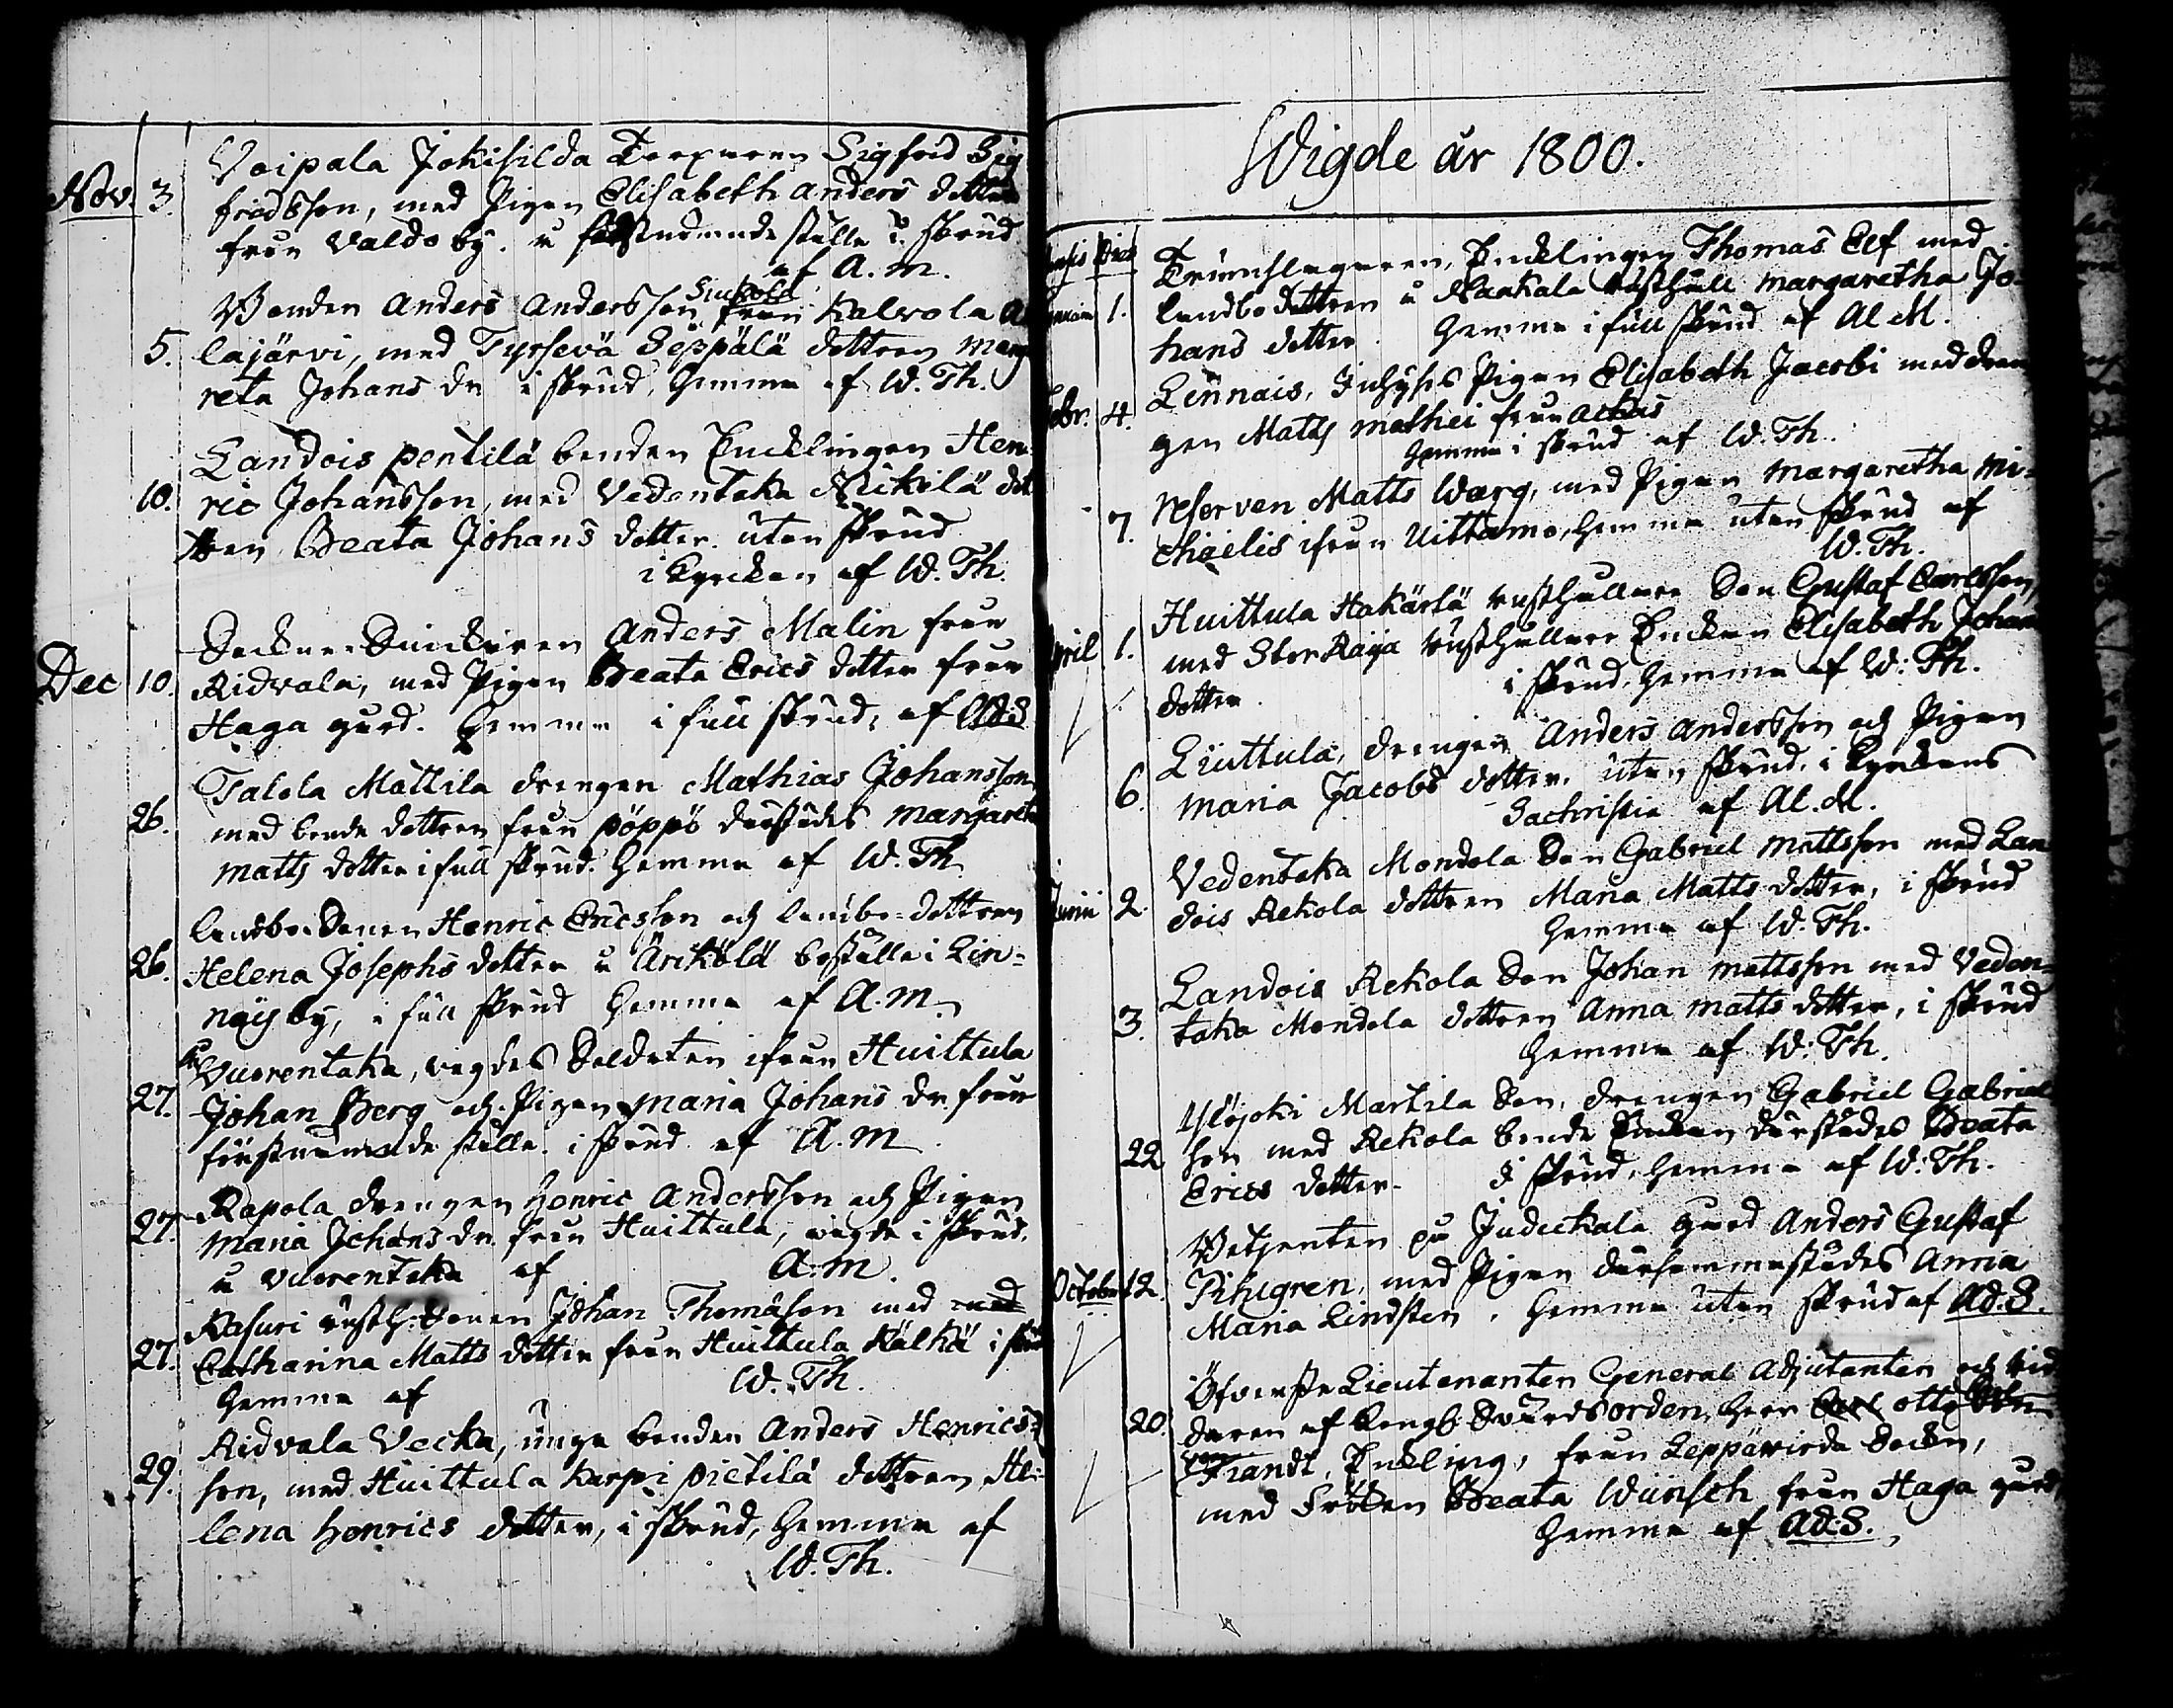 Nov. 3. Voipala Jokisilda Torparen Sigfrid Sig
fredsson, med Pigan Elisabeth Anders dotter
från Valdo by. å förstnemnde ställe i skrud
af A. M.
Bonden Anders Andersson från Kalvola
5. lajärvi, med Tyrsevä Seppälä dottren Marga
reta Johans dr i skrud, hemma af W. Th.
Landois Pentilä bonden Encklingen Hen
10. ric Johansson, med Vedentaka Nickilä dot
tren Beata Johans dotter. utan skrud
i Kyrckan af W. Th.
Dec 10. Sockne Skräddaren Anders Malin från
Ridvala, med Pigan Beata Erics dotter från
Haga gård. Hemma i full skrud, af Ad. S
Talola Mattila drengen Mathias Johansson
26. med bonde dottren från Pöppö därstädes Margareta
Matts dotter i full skrud. Hemma af W. Th
landbo Sonen Henric Ericsson och landbo-dottren
26. Helena Josephs dotter å Ärickälä boställe i Lin-
näis by, i full skrud Hemma af A. M.
på Vuorentaka, vigdes Soldaten ifrån Huittula
27. Johan Berg och Pigan Maria Johans dr från
förstnemnde ställe. i skrud af A. M
Rapola drengen Henric Andersson och Pigan
27. Maria Johans dr från Huittula, vigde i skrud.
å Vuorentaka af A. M.
Kasuri rusth: Sonen Johan Thomasson med med
27. Catharina Matts dotter från Huittula Kälkä i skrud
Hemma af W. Th.
Ridvala Vecka, unga bonden Anders Henrics-
29. son, med Huittula Karpi Pietilä dottren, He-
lena Henrics dotter, i skrud, Hemma af
W. Th.
Wigde år 1800.
Dies
Trumslagaren, Encklingen Thomas Elf med
1. landbo dottren å Raakala rusthåll Margaretha Jo-
hans dotter. Hemma i full skrud af Al M.
Lennais, Pigan Elisabeth Jacobi med dren
Febr. 4. gen Matts Mathei från Ackas
Hemma i skrud af W. Th.
Reserven Matts Warg, med Pigan Margaretha Mi-
7. chaelis ifrån Uittamo, hemma utan skrud af
W. Th.
Huittula Hakärlä rusthållare Son Gustaf Carlsson,
April 1. med Stor Raija rusthållare Enckan Elisabeth Johans
dotter i skrud, hemma af W: Th.
Liuttula, drengen Anders Andersson och Pigan
6. Maria Jacobs dotter. utan skrud. i Kyrckans
Sachristia af Al. M.
Vedentaka Mondola Son Gabriel Mattsson med Lan
Junii 2. dois Rekola dottren Maria Matts dotter, i skrud
Hemma af W. Th.
Landois Rekola Son Johan Mattsson med Veden-
3. taka Mondola dottren Anna Matts dotter, i skrud
Hemma af W: Th.
Ylöjoki Martila Son, drengen Gabriel Gabriel
22 son med Rekola bonde Enckan därstädes Beata
Erics dotter. i skrud, hemma af W: Th.
Betjenten på Judickala gård Anders Gustaf
October 12. Pihlgren, med Pigan därsammastädes Anna
Maria Lindsten. Hemma utan skrud af Ad. S.
Öfverste Lieutenanten General Adjutanten och Rid
20. daren af Kongl: Svärds orden, Herr Carl Otto
von Fiandt, Enckling, från Leppävirda Sockn,
med Fröken Beata Wunsch från Haga gård,
Hemma af Ad: S.